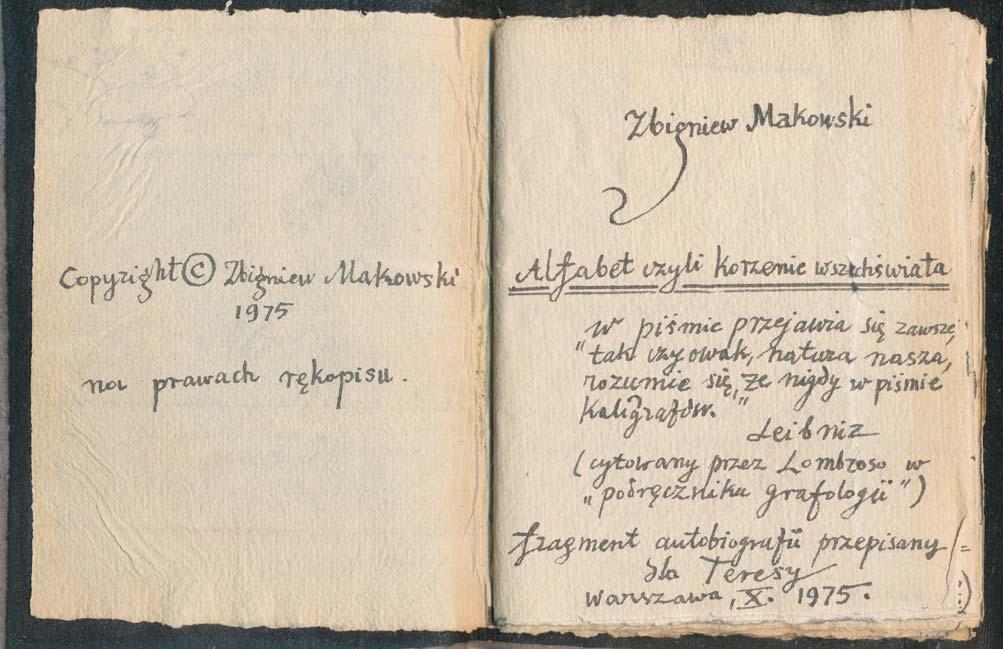 Copyright © Zbigniew Makowski
1975
na prawach rękopisu.
Zbigniew Makowski
Alfabet czyli korzenie wszechświata
w piśmie przejawia się zawsze,
"tak czy owak, natura nasza,
rozumie się, że nigdy w piśmie
kaligrafów."
Leibniz
(cytowany przez Lombroso w
„podręczniku grafologii")
fragment autobiografii przepisany
dla Teresy
Warszawa, X. 1975.